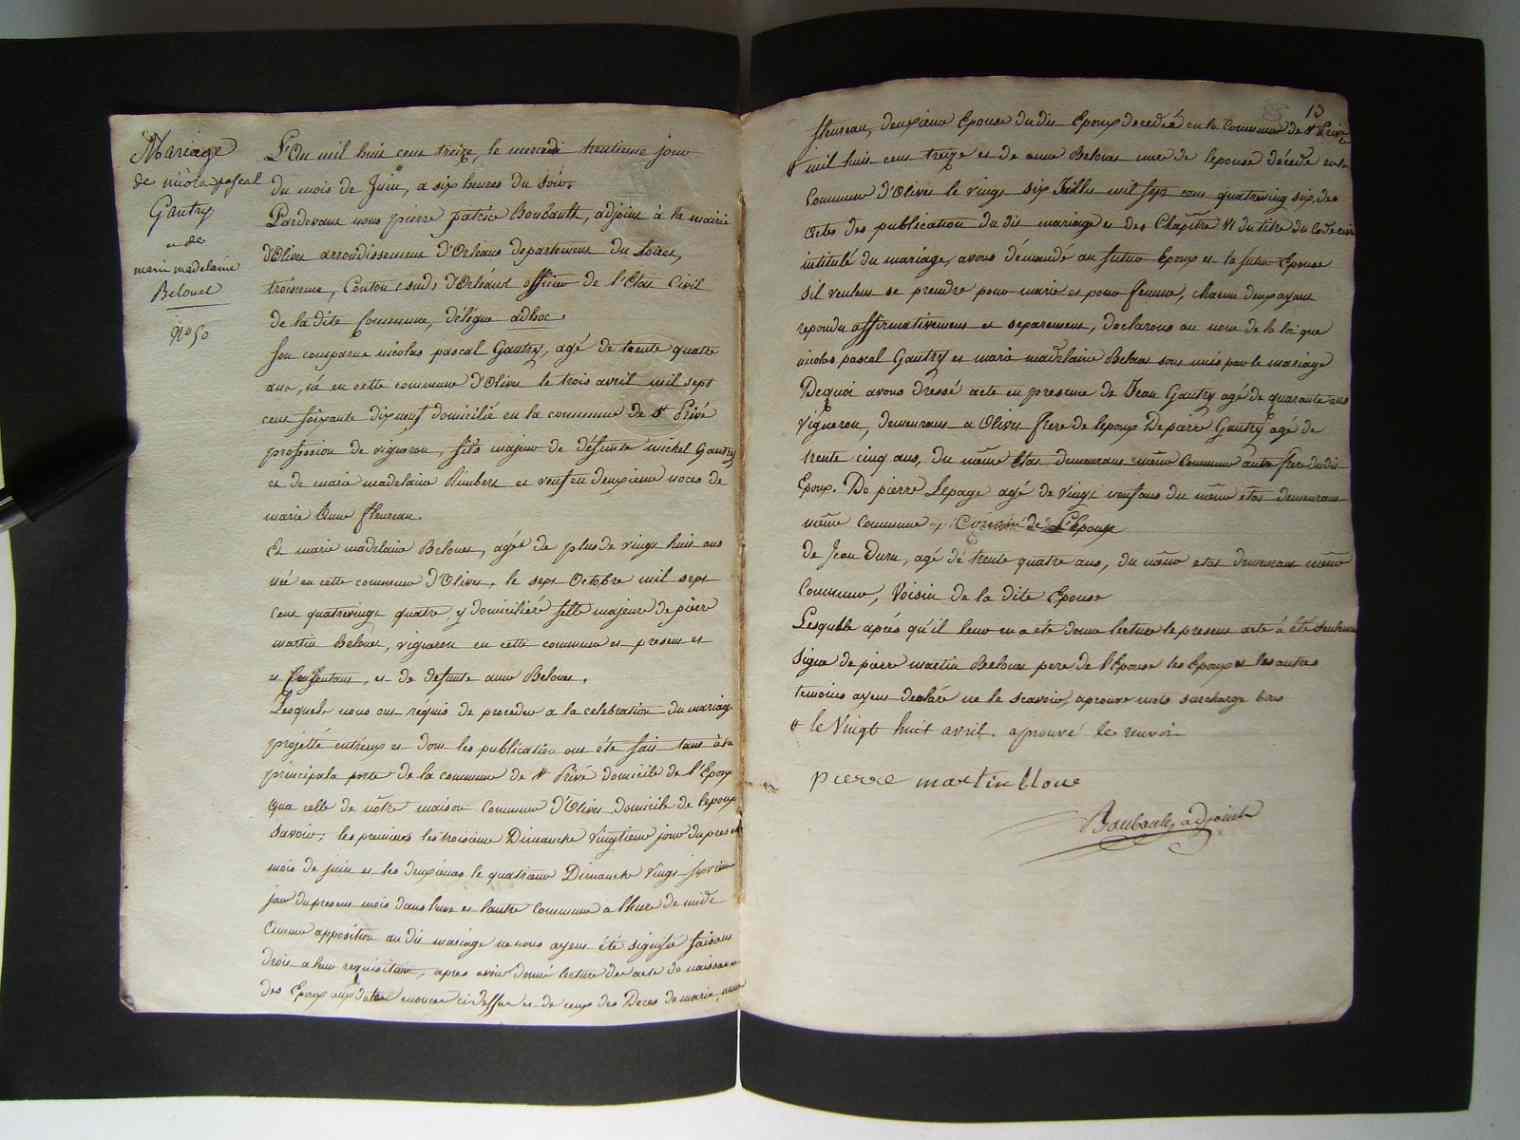 Mariage
de nicolas pascal
Gautry
et de
marie madelaine
Belouet
N° 50
L'an mil huit cent treize, le mercredi trentieme jour
du mois de Juin, a six heures du soir,
Pardevant nous pierre patrice Boubault, adjoint à la mairie
d'Olivet arrondissement d'Orleans departement du Loiret,
troisieme, Canton (sud) d'Orléans officier de l'Etat Civil
de la dite Commune, délégué adhoc.
son comparus nicolas pascal Gautry, agé de trente quatre
ans, né en cette commune d'Olivet le trois avril mil sept
cent soixante dixneuf domicilié en la commune de St Privé
profession de vigneron, fils majeur de défunte michel Gautry
et de marie madelaine Rimbert et veuf en deuxieme noces de
marie Anne fleureau.
Et marie madelaine Belouet, agée de plus de vingt huit ans
née en cette commune d'Olivet, le sept Octobre mil sept
cent quatrevingt quatre, y domiciliée fille majeure de pierre
martin Belouet, vigneron en cette commune et present et
et Consentant, et de defunte anne Belouet.
Lesquels nous ont requis de proceder a la celebration du mariage
projetté entr'eux et dont les publication ont été fait tant à la
principale porte de la commune de St Privé domicile de l'Epoux
que celle de nôtre maison Commune d'Olivet domicile de l'epouse
Savoir; les premieres le troisieme Dimanche vingtieme jour du present
mois de juin et les deuxiemes le quatrieme Dimanche vingt septieme
jour du present mois dans l'une et l'autre commune a l'heure de midi
Aucune apposition au dit mariage ne nous ayent été signifié faisant
droit a leur requisition, apres avoir donné lecture des acte de naissance
des Epoux aux dates enoncée cidessus et de ceux des Deces de marie anne
13
fleureau, deuxieme Epouse du dit Epoux decedée en la Commune de St Privé
mil huit cent treize et de anne Belouet mere de lepouse décédé en la
Commune d'Olivet le vingt six Juillet mil sept cent quatrevingt six, des
actes des publication du dit mariage et des Chapitre VI du titre du Code civil
intitulé du mariage, avons démandé au futur Epoux et la future Epouse
Sil veulent se prendre pour marie et pour femme, chacun deux ayant
repondu affirmativement et separement, declarons au nom de la loi que
nicolas pascal Gautry et marie madelaine Belouet sont unis par le mariage
Dequoi avons dressé acte en presence de Jean Gautry agé de quarante ans
vigneron, demeurant a Olivet frere de lepoux De pierre Gautry agé de
trente cinq ans, du même état demeurant même Commune autre frere dudit
Epoux. De pierre Lepage agé de vingt neuf ans du même état demeurant
même commune, Cousin de L'Epouse
de Jean Duru, agé de trente quatre ans, du même etat demeurant même
Commune, Voisin de la dite Epouse
Lesquelle après qu'il leur en a été donné lecture le present acte à été seulement
Signé de pierre martin Belouet pere de l'Epouse les Epoux et les autres
temoins ayent declaré ne le scavoir, aprouvé mots surchargé bons
le Vingt huit avril. aprouvé le renvoi
pierre martin bloue
Boubault, adjoint